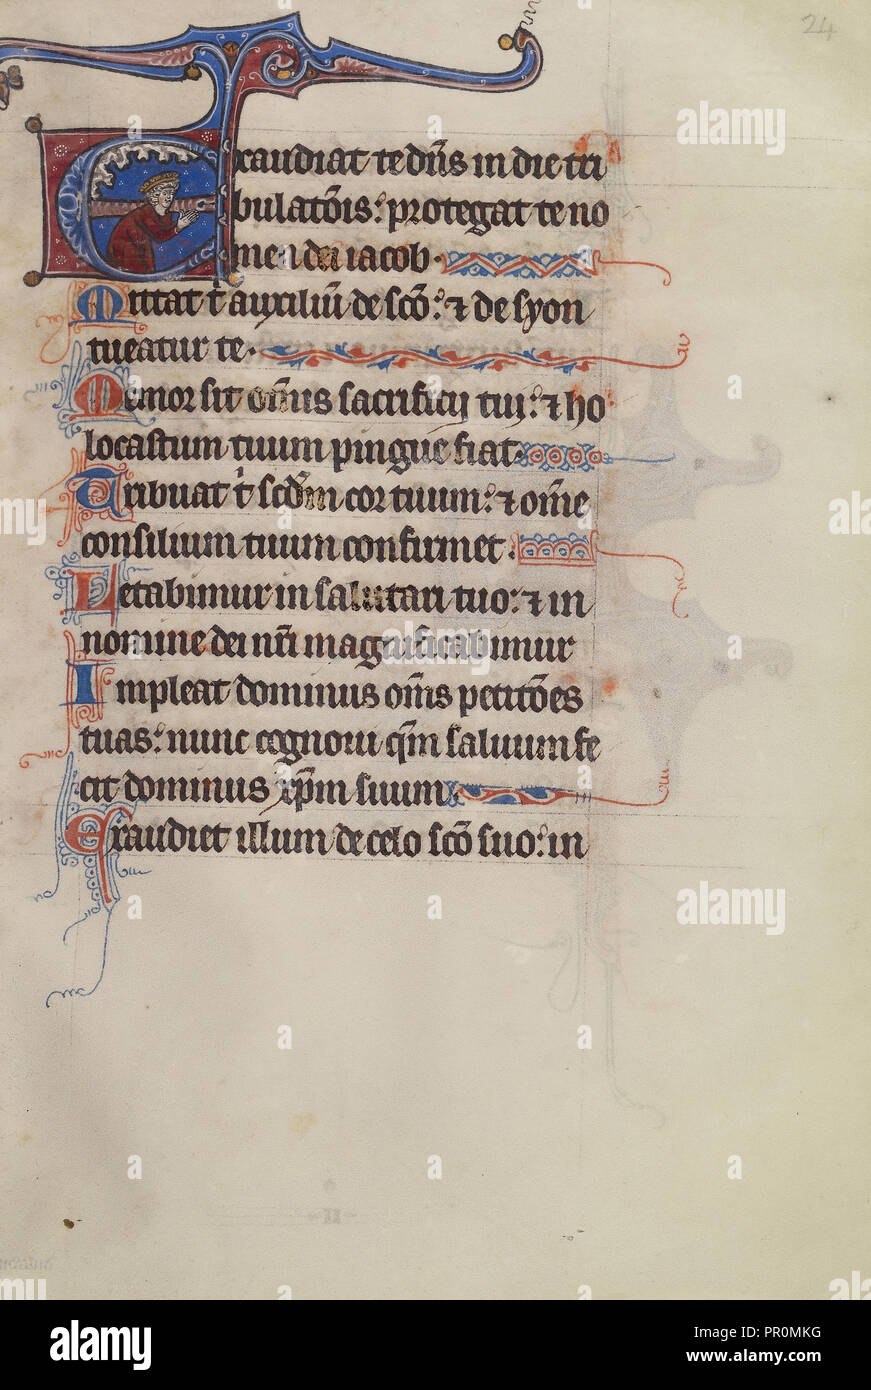 24
Exaudiat te dñs in die tri
bulatõis: protegat te no
men dei iacob.
Mittat t̄ auxiliũ de scõ: ⁊ de syon
tueatur te.
Memor sit om̃is sacrificij tui: ⁊ ho
locastum tuum pingue fiat.
Tribuat t̄ scd̃m cor tuum: ⁊ om̃e
consilium tuum confirmet.
Letabimur in salutari tuo: ⁊ in
nomine dei nr̃i magnificabimur
Impleat dominus om̃s petitões
tuas: nunc cognoui qm̃ saluum fe
cit dominus xp̃m suum.
Exaudiet illum de celo scõ suo: in
alamy
alamy stock photo
PR0MKG
www.alamy.com